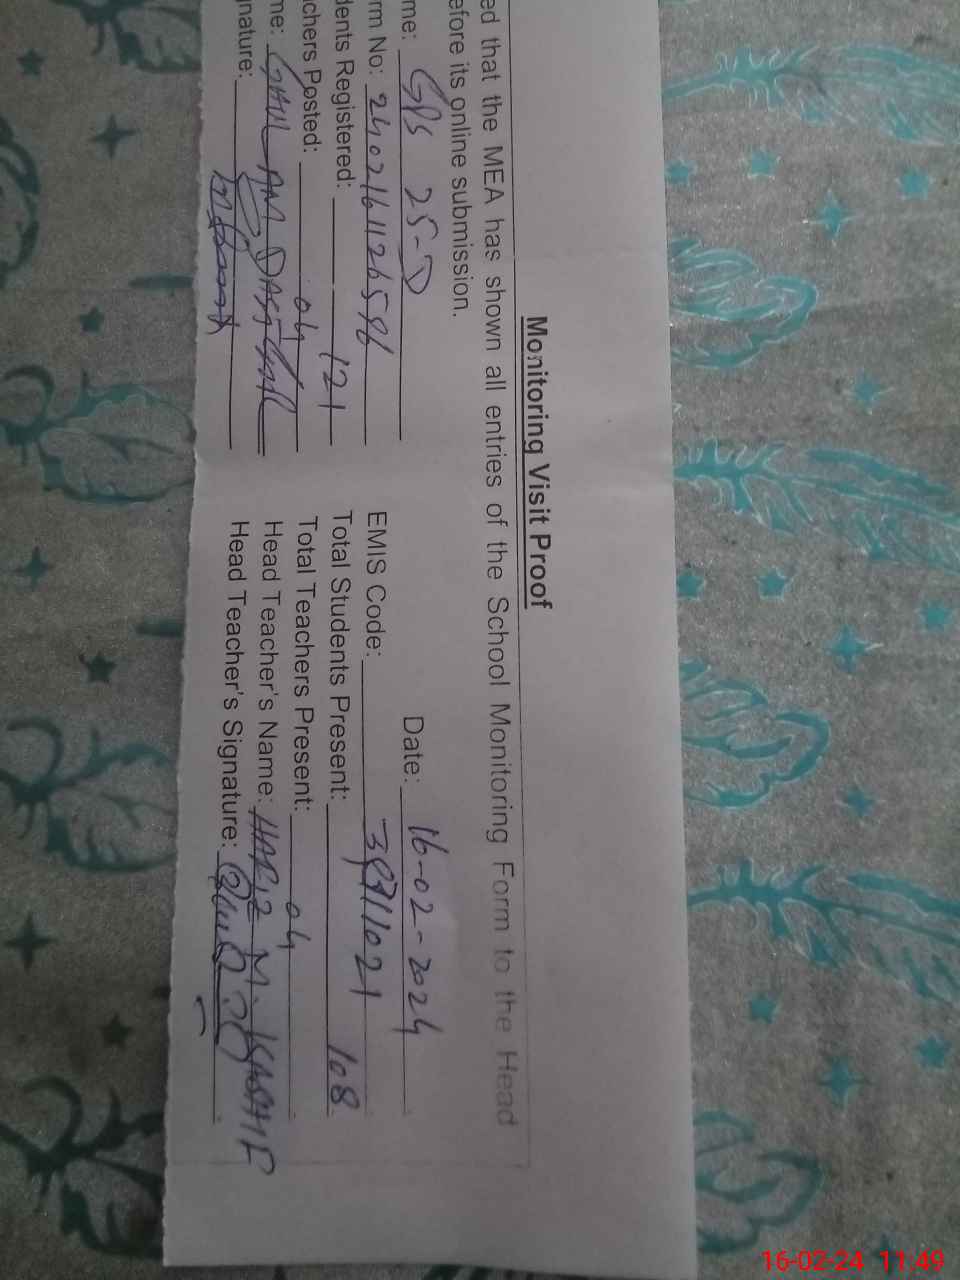 Monitoring Visit Proof
ed that the MEA has shown all entries of the School Monitoring Form to the Head
efore its online submission.
me: GPS 25-D Date: 16-02-2024
rm No: 2402161126596 EMIS Code: 31711021
dents Registered: 121 Total Students Present: 108
chers Posted: 04 Total Teachers Present: 04
me: GHULAM Head Teacher's Name: HAFIZ M. KASHIF
gnature: Head Teacher's Signature:
16-02-24 11:49